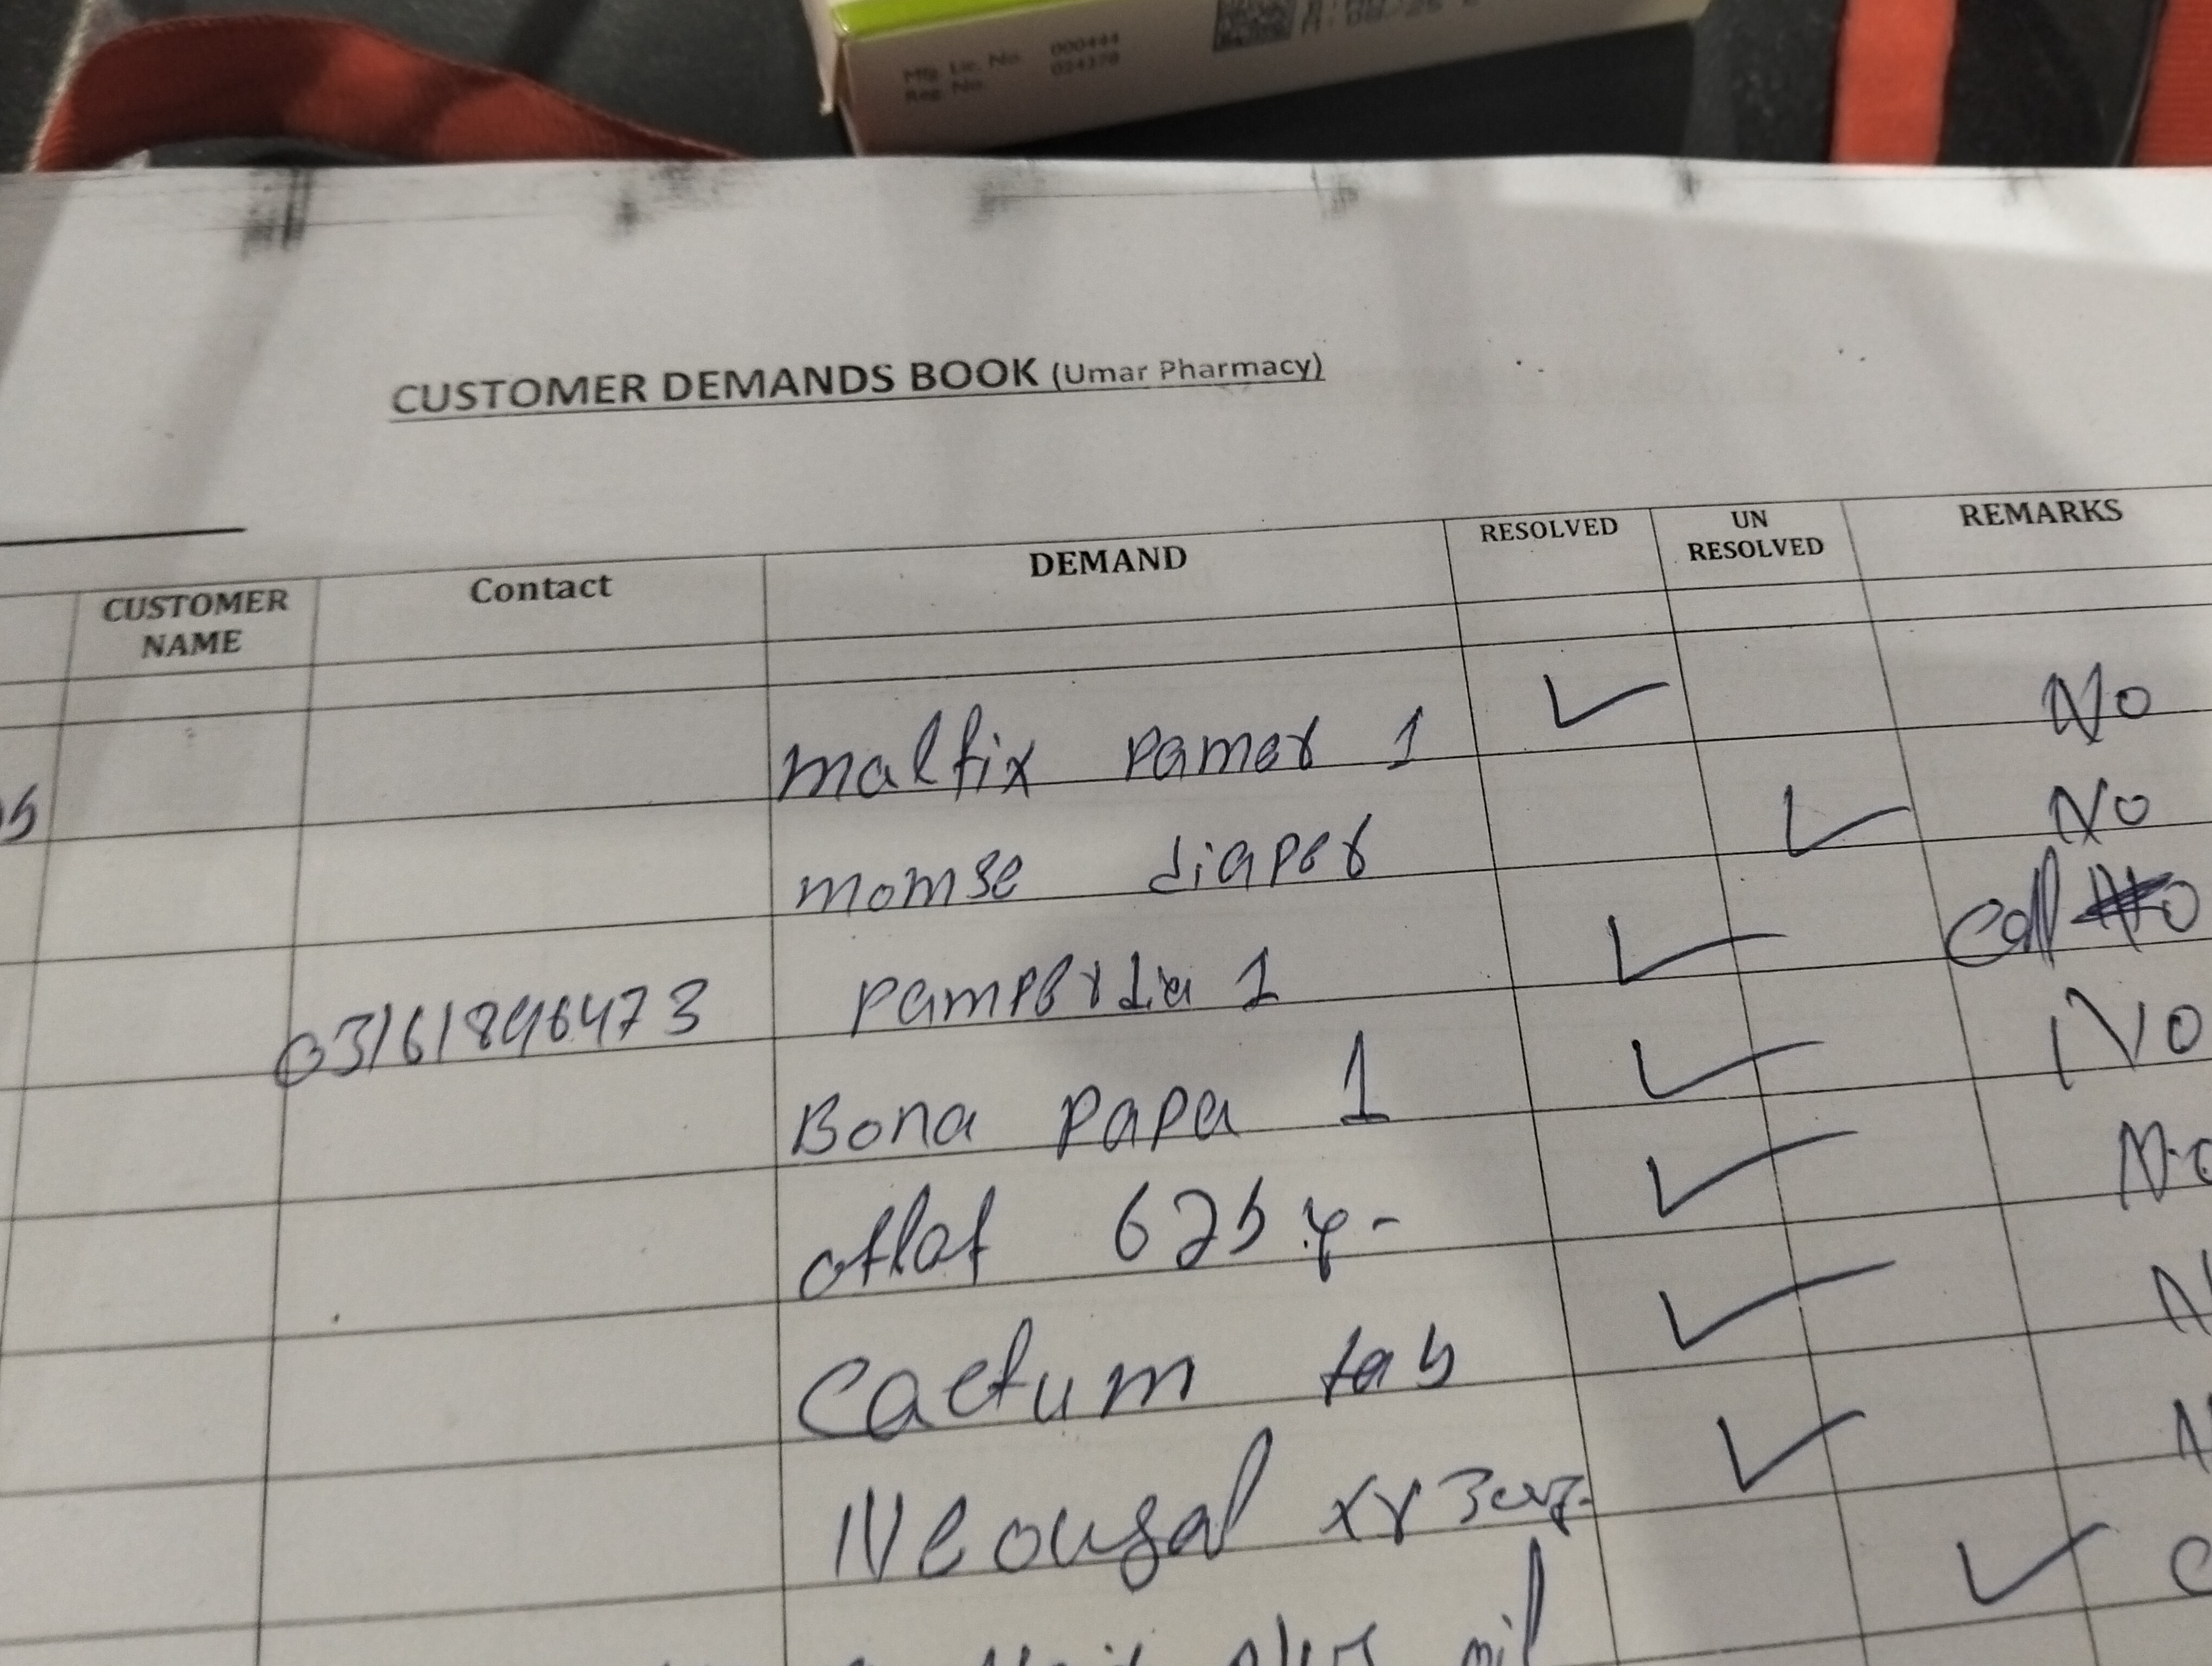 Mfg. Lic. No. 000444
Reg. No. 024370
CUSTOMER DEMANDS BOOK (Umar Pharmacy)
CUSTOMER NAME Contact DEMAND RESOLVED UN RESOLVED REMARKS
malfix pamer 1 ✓ No
momse diaper ✓ No
03161846473 pamper 1 ✓ call
Bona papa 1 ✓ No
oflaf 625 ✓ No
Caefum tab ✓ N
Neougal xr ✓ N
✓ C
plus oil